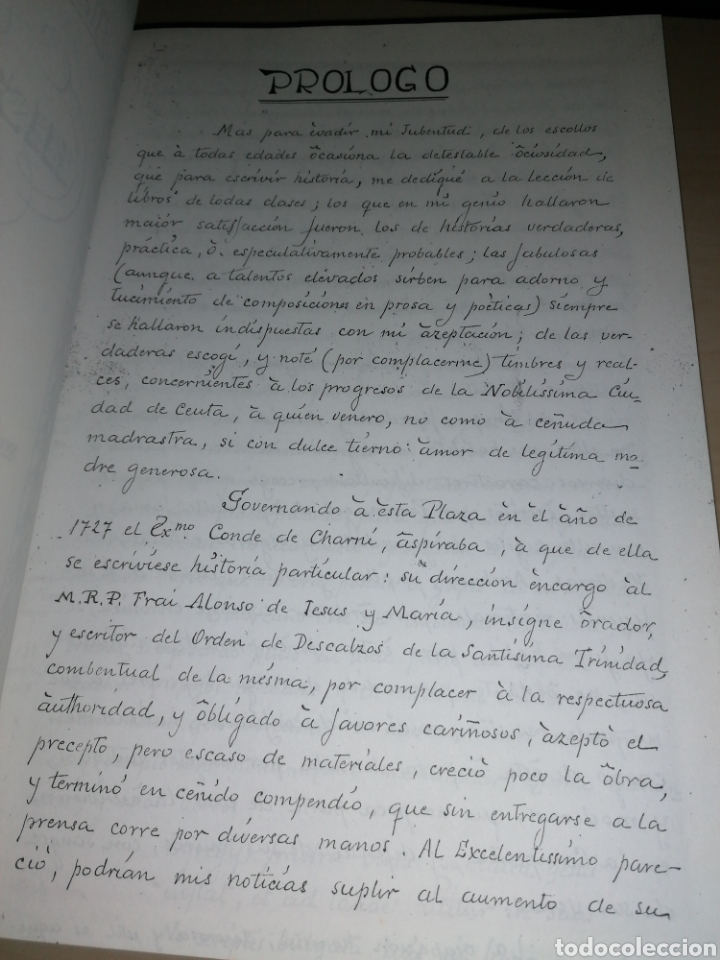 PROLOGO
Mas para èvadir mi Jubentud, de los escollos
que à todas edades òcasiona la detestable òciosidad,
què para escrivir història, me dediquè a la lección de
libros de todas clases; los que en mi genio hallaron
maiór satisfacción fueron los de historias verdaderas,
práctica, ò especulativamente probables; las fabulosas
(aunque a talentos elevados sirben para adorno y
lucimiento de composiciónes en prosa y poèticas) siempre
se hallaron indispuestas con mi àzeptación; de las ver-
daderas escogí, y noté (por complacerme) timbres y real-
ces, concernientes à los progresos de la Nobilissima Ciu-
dad de Ceuta, à quien venero, no como à ceñuda
madrastra, si con dulce tierno amor de legítima ma-
dre generosa.
Governando à esta Plaza en el año de
1727 el Exmo Conde de Charní, àspiraba, à que de ella
se escriviese història particular: su dirección encargo àl
M.R.P. Frai Alonso de Jesus y María, insigne òrador,
y escritor del Orden de Descalzos de la Santisima Trinidad,
combentual de la mesma, por complacer à la respectuosa
àuthoridad, y òbligado à favores cariñosos, àzeptò el
precepto, pero escaso de materiales, creciò poco la òbra,
y terminó en ceñido compendio, que sin entregarse a la
prensa corre por diversas manos. Al Excelentissimo pare-
ciò, podrían mis noticias suplir al aumento de su
todocoleccion